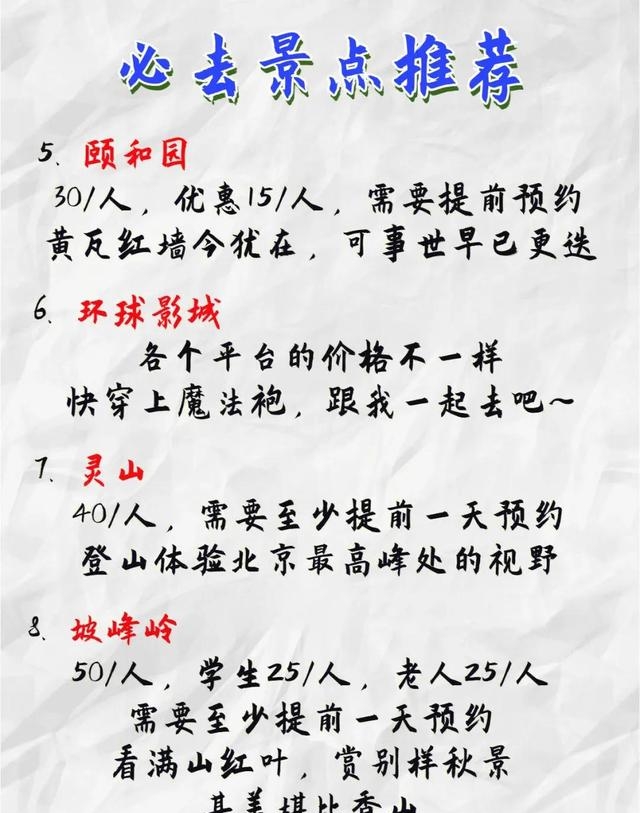 必去景点推荐
5、颐和园
30/人，优惠15/人，需要提前预约
黄瓦红墙今犹在，可事世早已更迭
6、环球影城
各个平台的价格不一样
快穿上魔法袍，跟我一起去吧~
7、灵山
40/人，需要至少提前一天预约
登山体验北京最高峰处的视野
8、坡峰岭
50/人，学生25/人，老人25/人
需要至少提前一天预约
看满山红叶，赏别样秋景
其美堪比香山